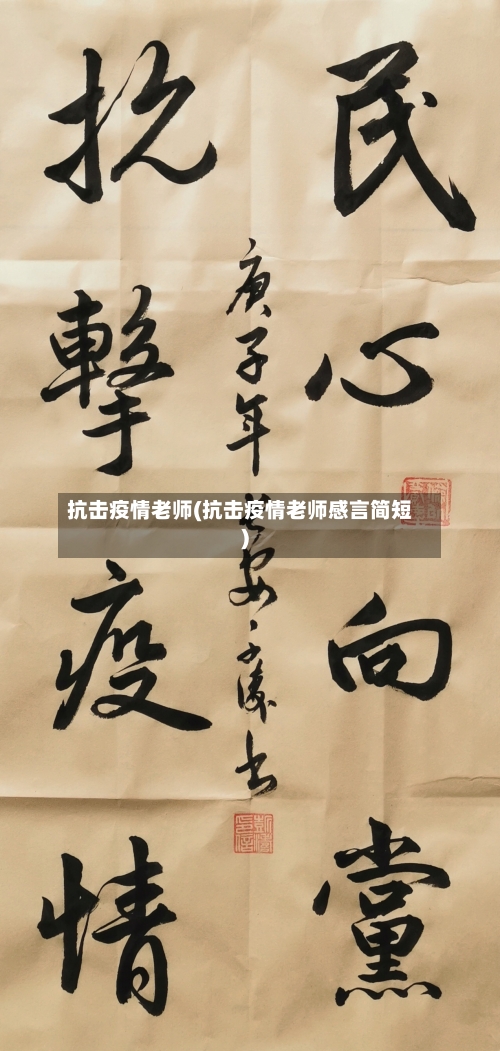 民心向黨
抗擊疫情
庚子年長安子濤書
抗击疫情老师(抗击疫情老师感言简短
)